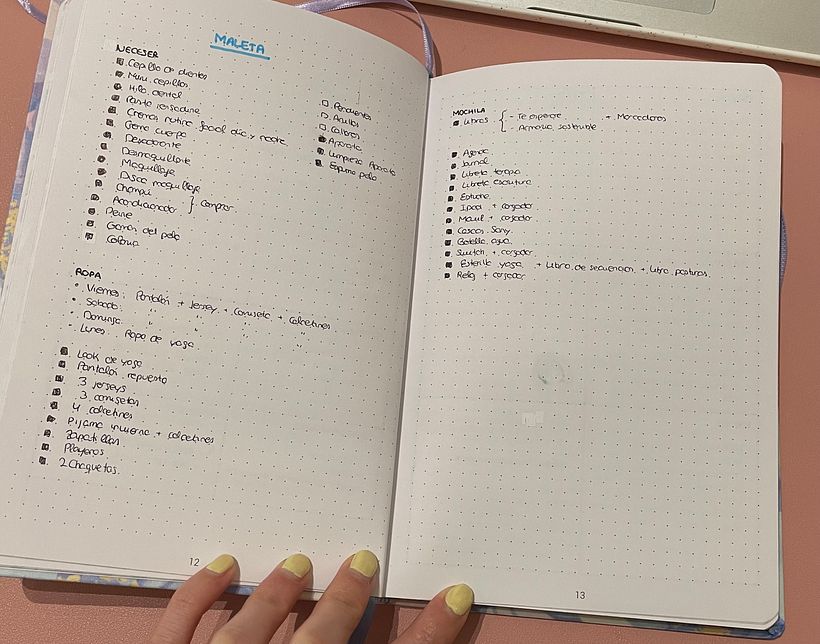 MALETA
NECESER
Cepillo de dientes
Mini cepillos
Hilo dental
Pasta
Cremas rutina facial día y noche
Crema cuerpo
Desodorante
Desmaquillante
Maquillaje
Discos maquillaje
Champú
Acondicionador } Comprar
Peine
Gomas del pelo
Colonia
Pendientes
Anillos
Collares
Aparato
Limpieza Aparato
Espuma pelo
ROPA
Viernes: Pantalón + Jersey + Camiseta + Calcetines
Sábado: " " " "
Domingo: " " " "
Lunes: Ropa de yoga
Look de yoga
Pantalón repuesto
3 jerseys
3 camisetas
4 calcetines
Pijama invierno + calcetines
Zapatillas
Playeros
2 Chaquetas
12
MOCHILA
Libros { - Te esperaré + Marcadores
- Armonía sostenible
Agenda
Journal
Libreta terapia
Libreta escritura
Estuche
Ipad + cargador
Móvil + cargador
Cascos Sony
Botella agua
Switch + cargador
Esterilla yoga + Libro de secuencias + Libro posturas
Reloj + cargador
13